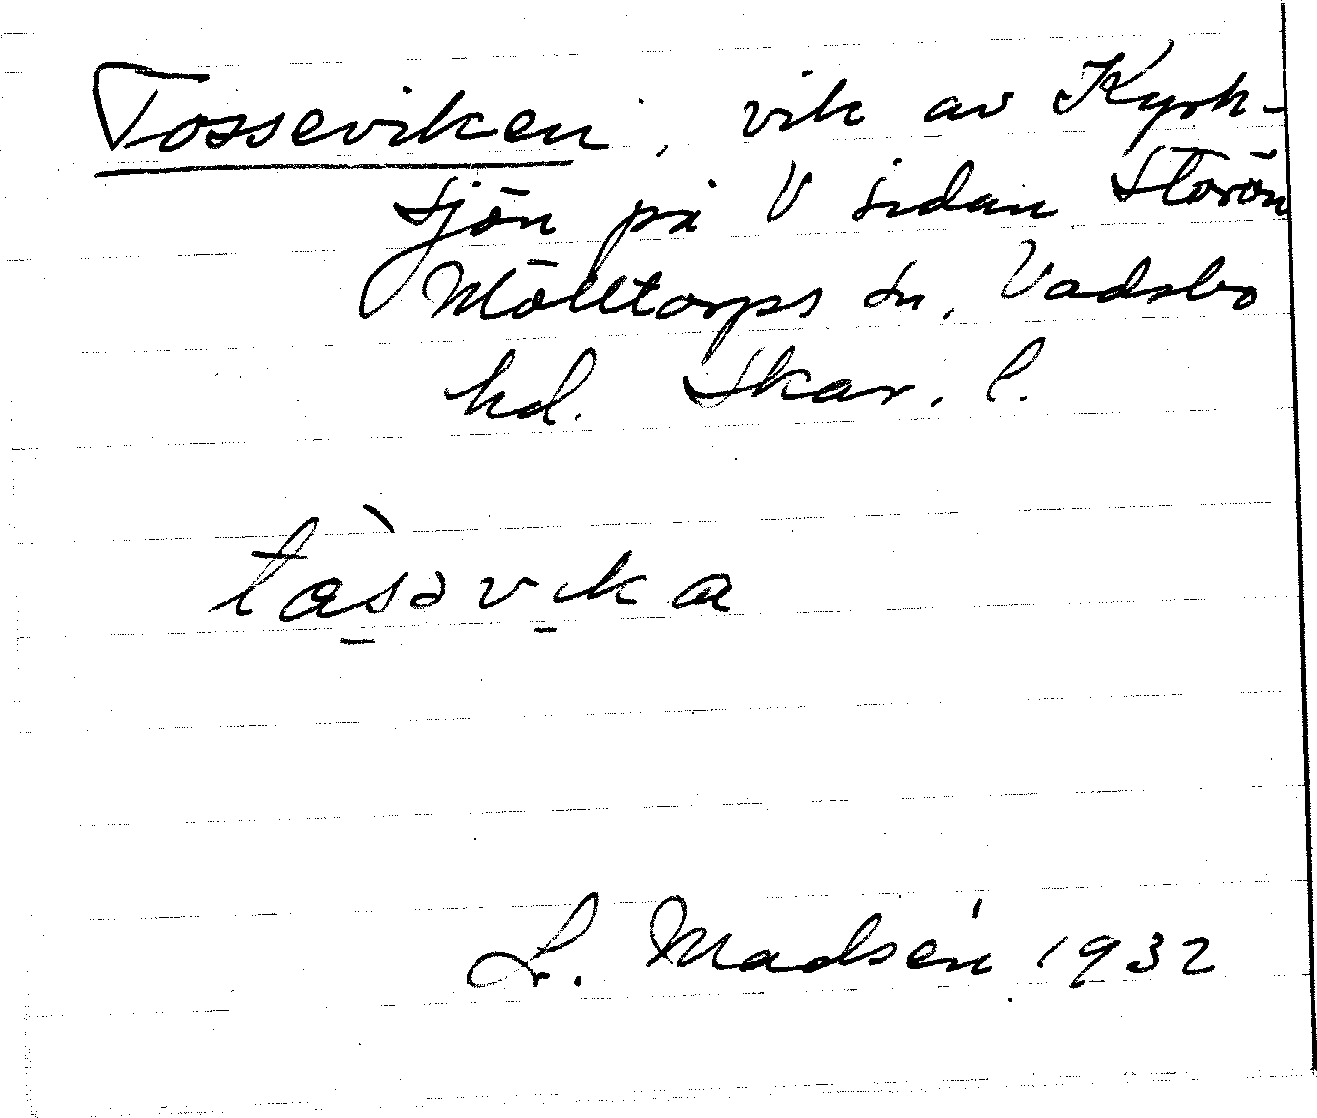 Tosseviken, vik av Kyrk-
sjön på V sidan Storön
Mölltorps sn, Vadsbo
hd. Skar. l.
tàs̱əvi̱ka
L. Madsén 1932